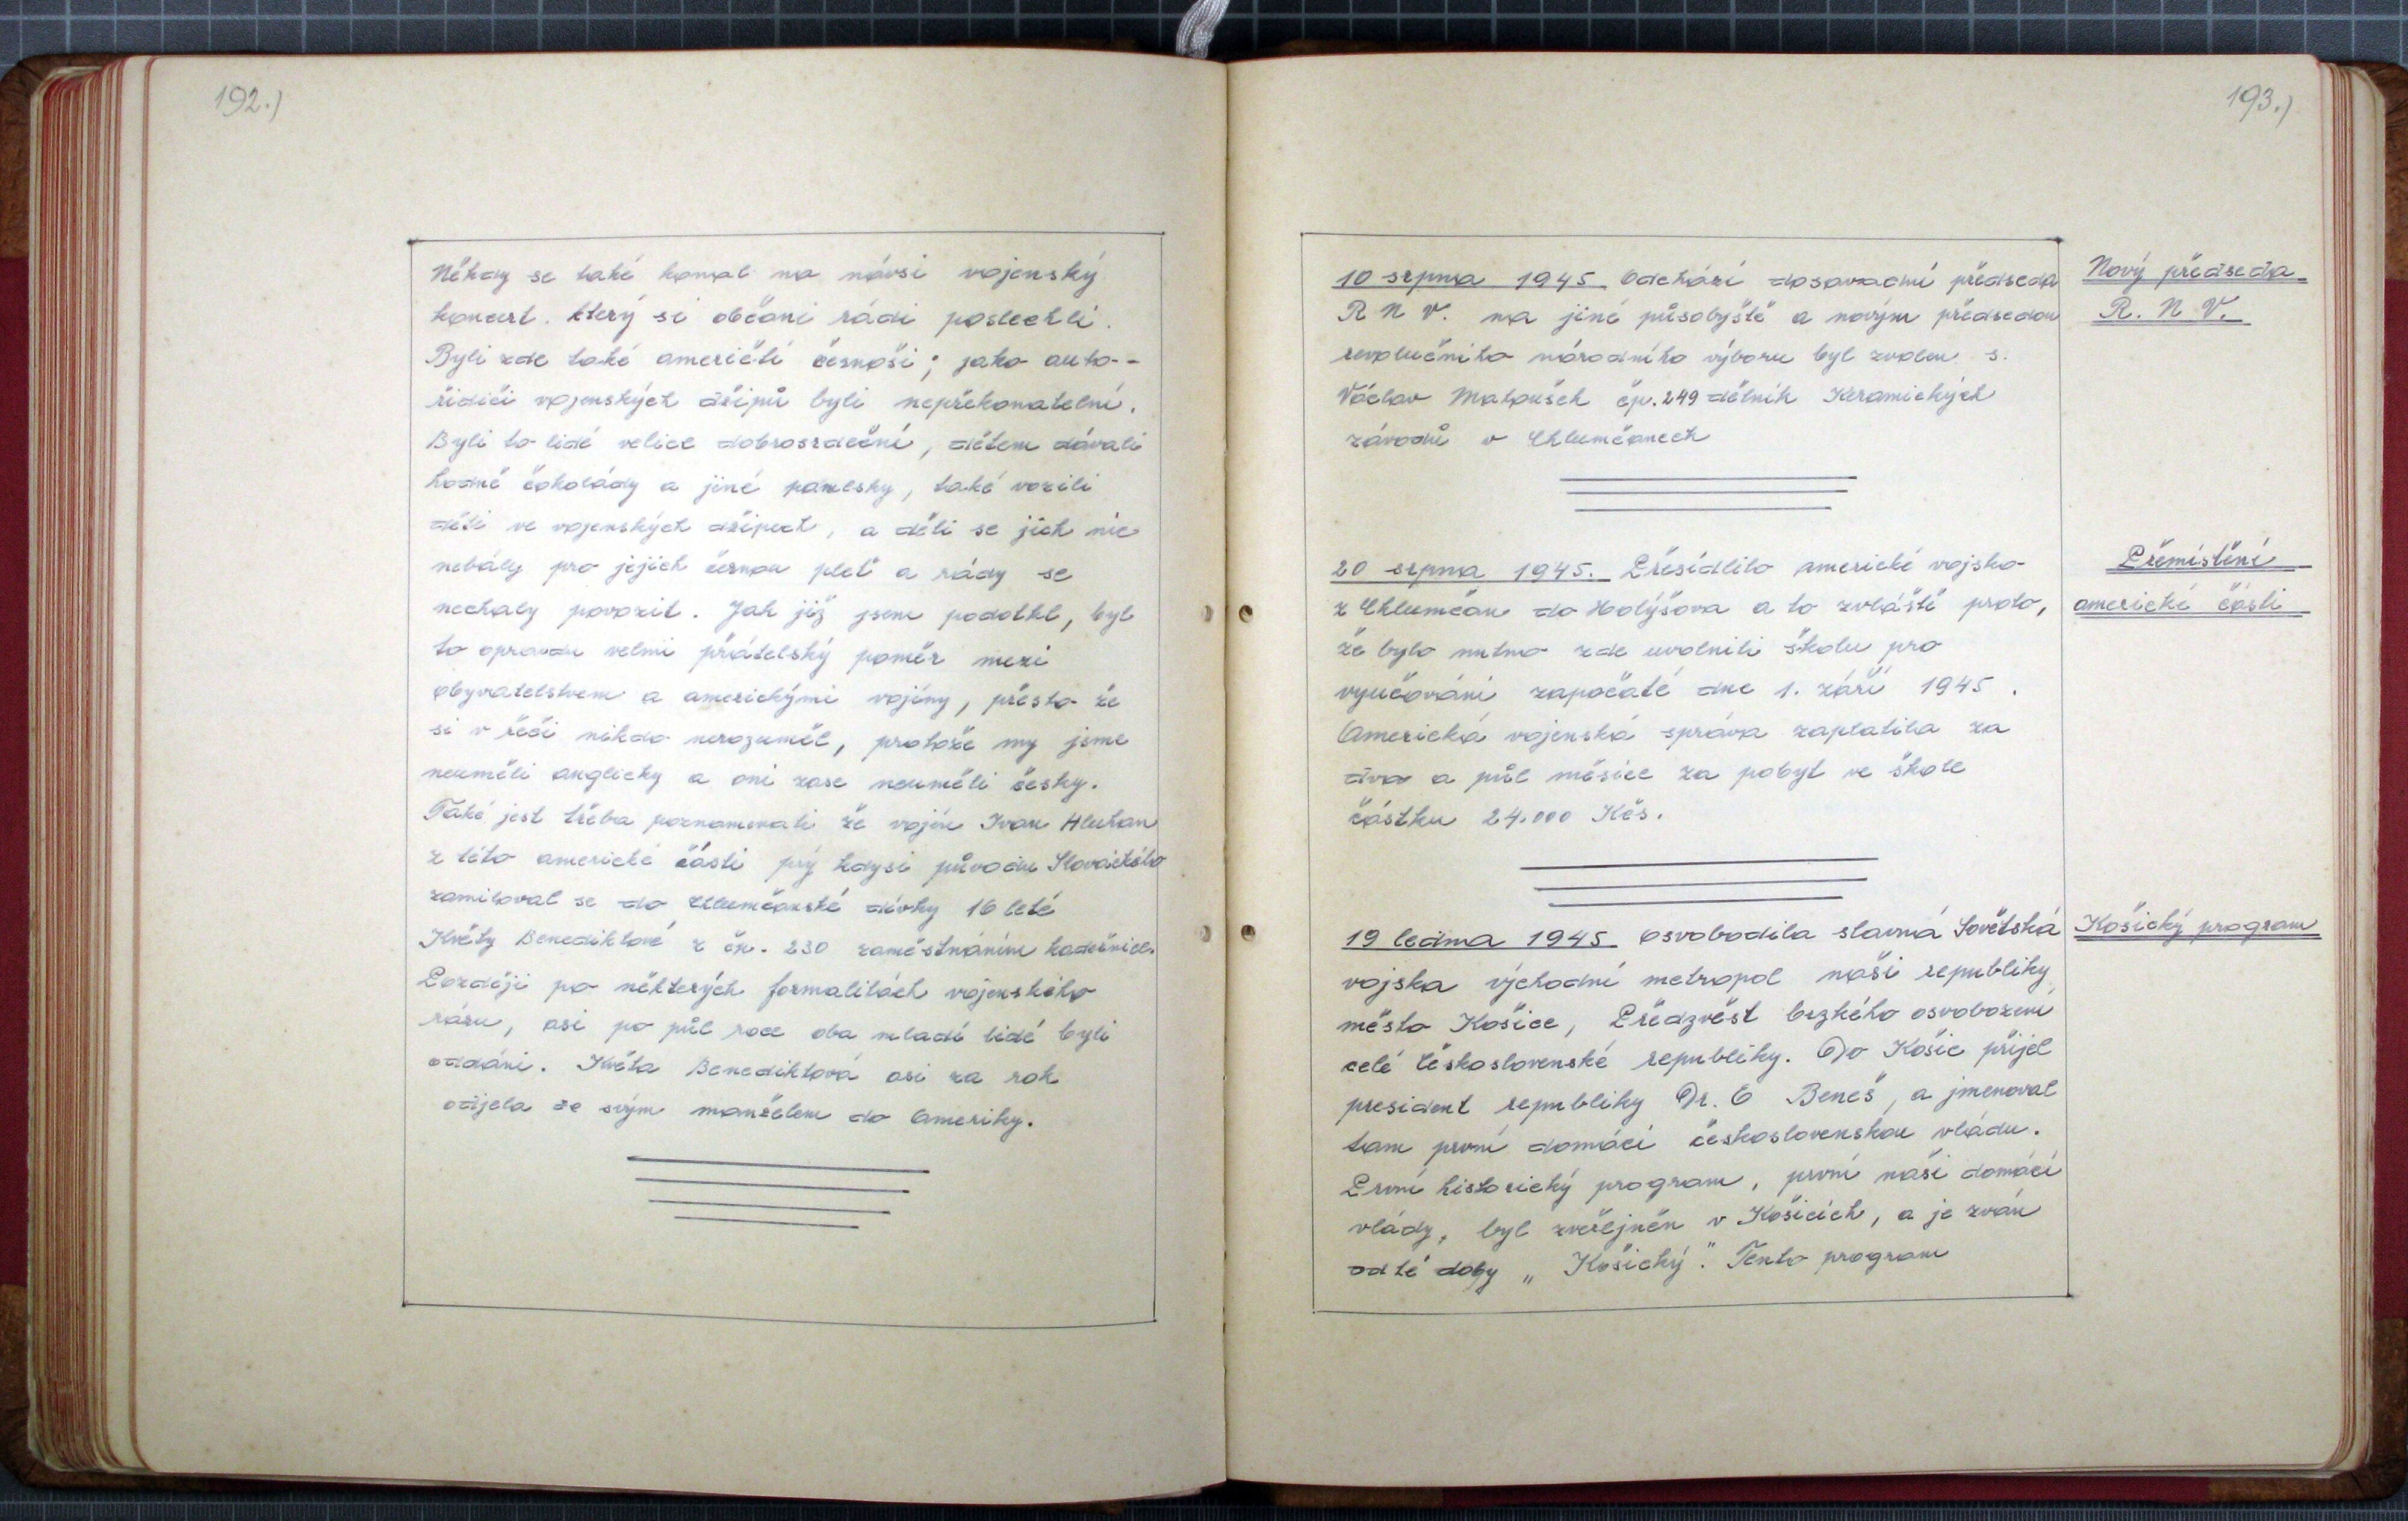 192.)
Někdy se také konal na návsi vojenský
koncert. který si občani rádi poslechli.
Byli zde také američtí černoši; jako auto-
řidiči vojenských džípů byli nepřekonatelní.
Byli to lidé velice dobrosrdeční, dětem dávali
hodně čokolády a jiné pamlsky, také vozili
děti ve vojenských džípech, a děti se jich nic
nebály pro jejich černou pleť a rády se
nechaly povozit. Jak již jsem podotkl, byl
to opravdu velmi přátelský poměr mezi
obyvatelstvem a americkými vojíny, přesto že
si v řeči nikdo nerozuměl, protože my jsme
neuměli anglicky a oni zase neuměli česky.
Také jest třeba poznamenati že vojín Ivan Hluhan
z této americké části prý kdysi původu Slováckého
zamiloval se do Chlumčanské dívky 16 leté
Květy Benediktové z čp. 230 zaměstnáním kadeřnice.
Později po některých formalitách vojenského
rázu, asi po půl roce oba mladí lidé byli
oddáni. Květa Benediktová asi za rok
odjela se svým manželem do Ameriky.
193.)
10 srpna 1945 Odchází dosavadní předseda
R N V. na jiné působyště a novým předsedou
revolučního národního výboru byl zvolen s.
Václav Matoušek čp. 249 dělník Keramických
závodů v Chlumčanech
Nový předseda
R. N V.
20 srpna 1945. Přesídlilo americké vojsko
z Chlumčan do Holýšova a to zvláště proto,
že bylo nutno zde uvolniti školu pro
vyučování započaté dne 1. září 1945.
Americká vojenská správa zaplatila za
dva a půl měsíce za pobyt ve škole
částku 24.000 Kčs.
Přemístění
americké části
19 ledna 1945 osvobodila slavná Sovětská
vojska východní metropol naši republiky
město Košice, Předzvěst brzkého osvobození
celé Československé republiky. Do Košic přijel
president republiky Dr. E Beneš, a jmenoval
tam první domácí československou vládu.
První historický program, první naši domácí
vlády, byl zveřejněn v Košicích, a je zván
od té doby „Košický". Tento program
Košický program